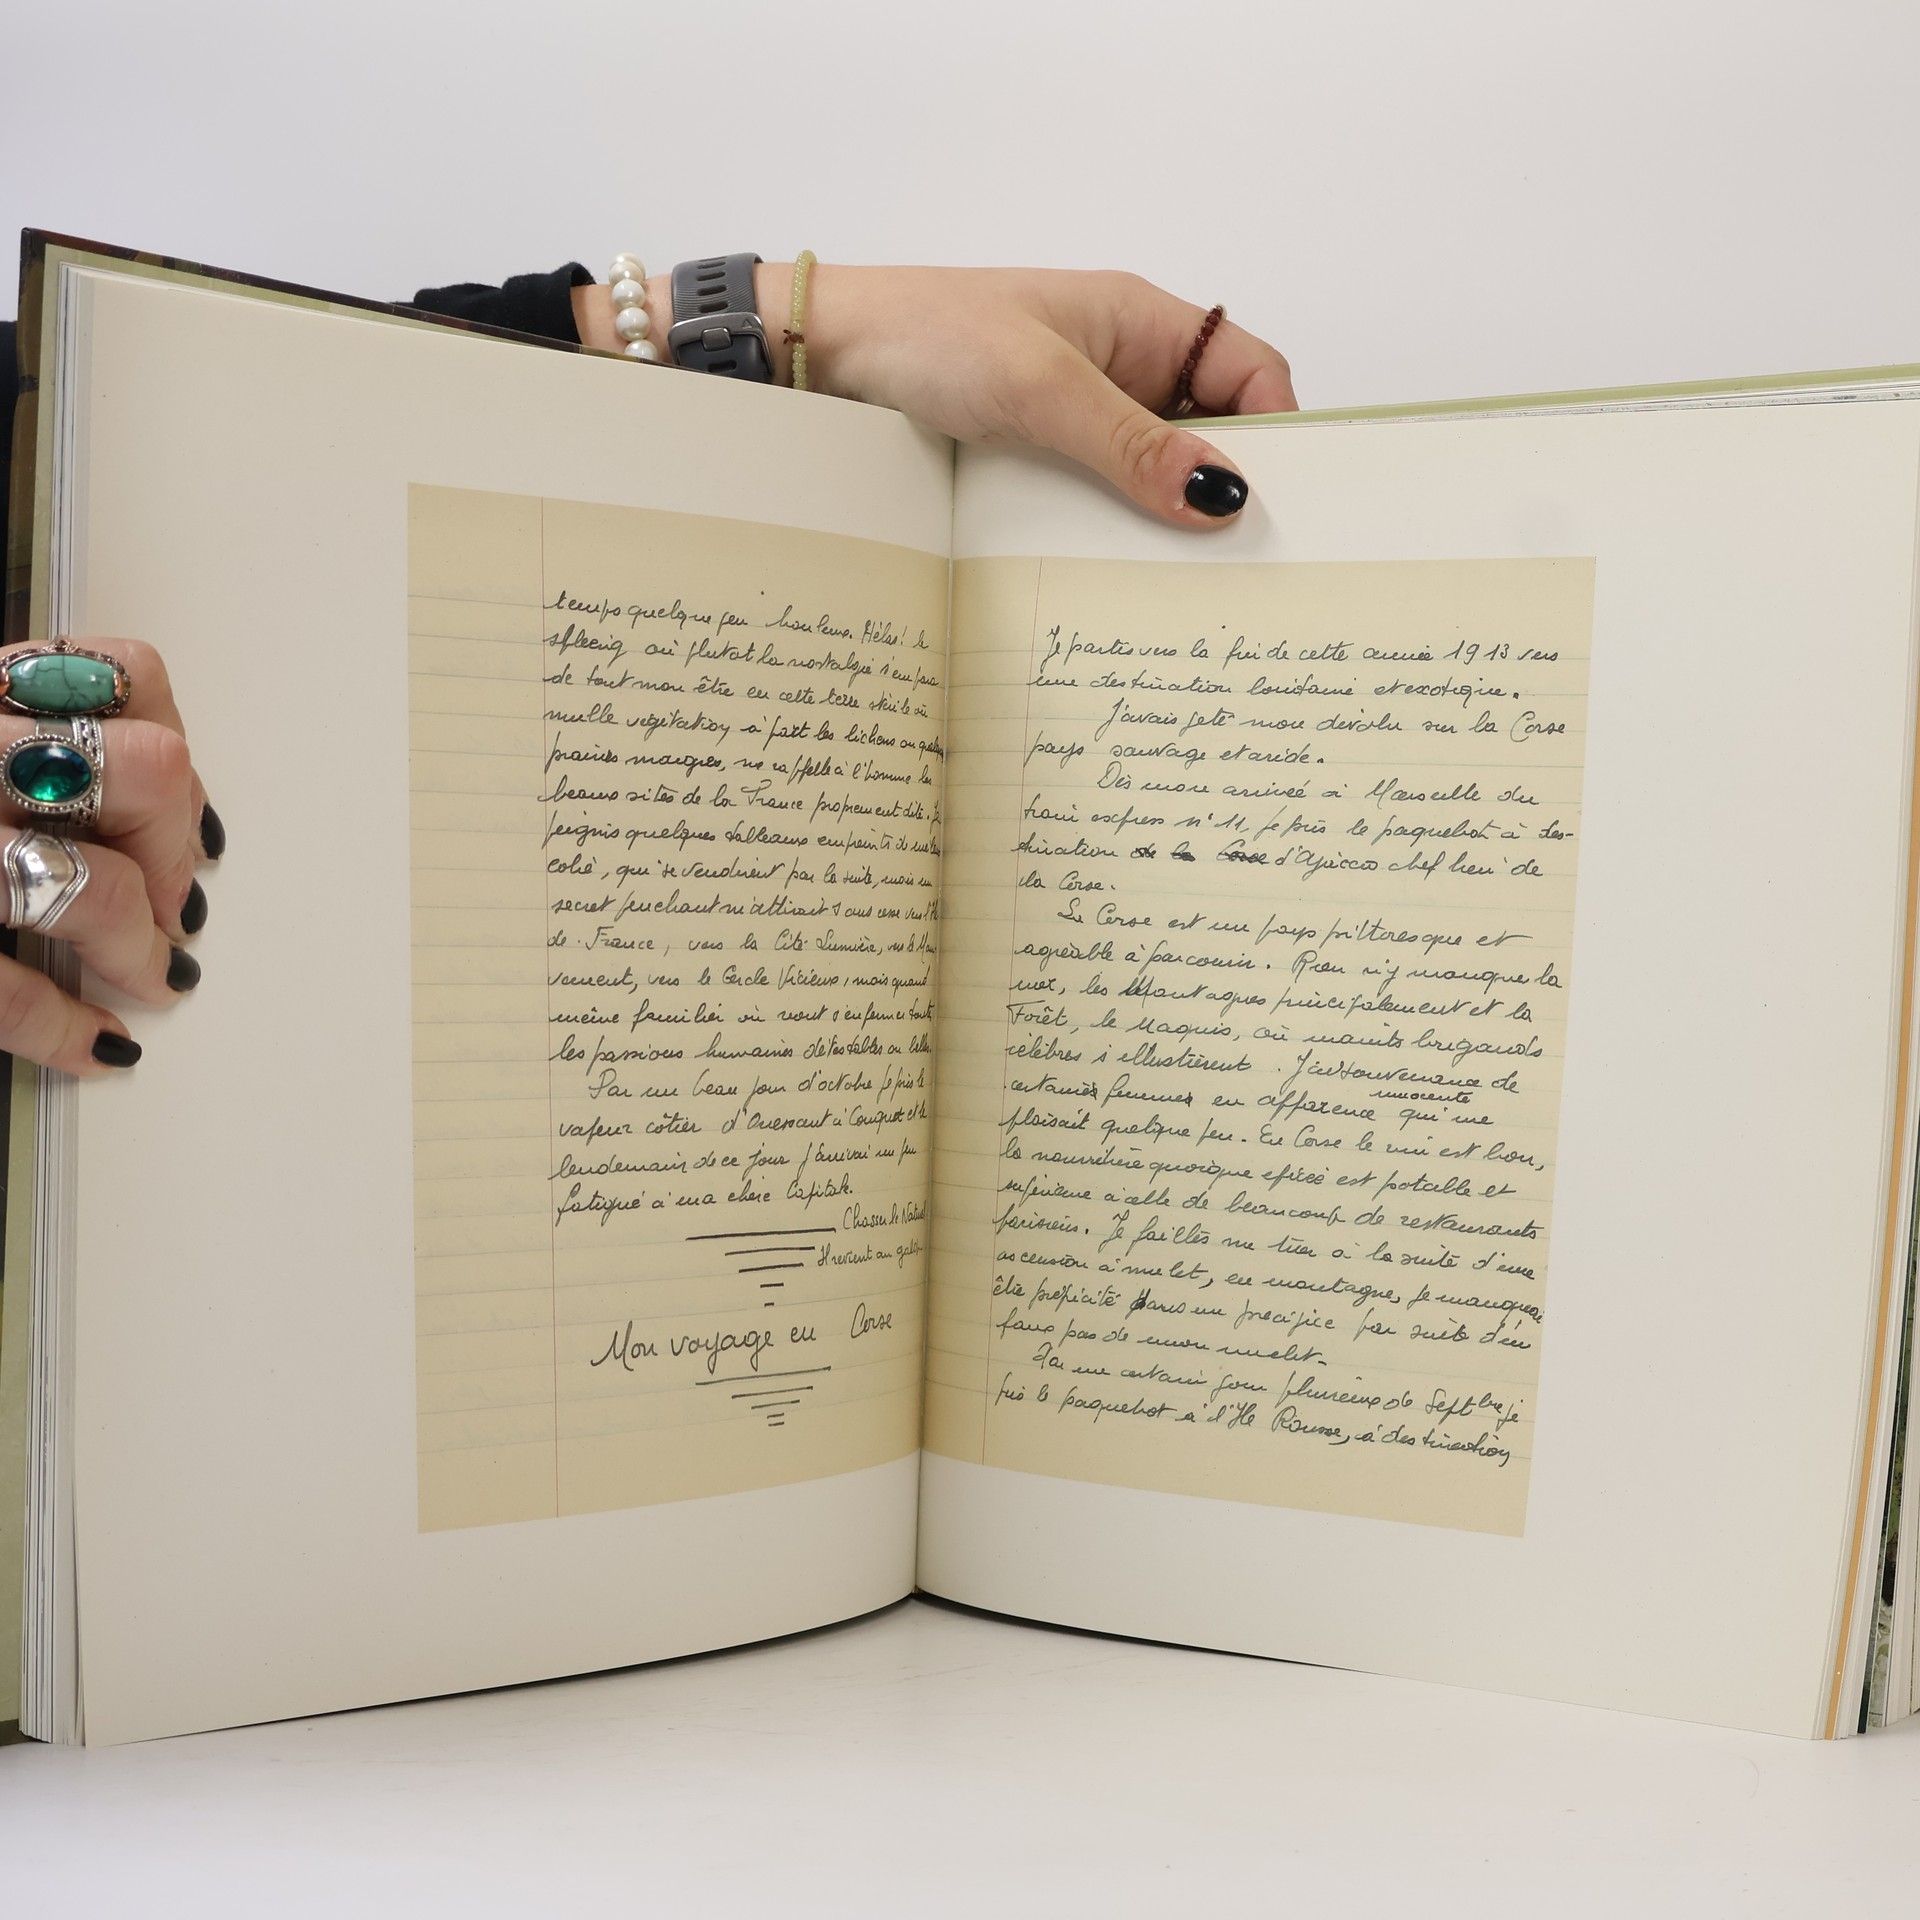 temps quelque peu houleux. Hélas! le
spleeng où plutot la nostalgie s'empara
de tout mon être en cette terre stérile où
nulle végétation à part les lichens ou quelques
prairies maigres, ne rappelle à l'homme les
beaux sites de la France proprement dite. Je
peignis quelques tableaux empreints de mélan
colie, qui se vendirent par la suite, mais un
secret penchant m'attirait sans cesse vers l'Ile
de France, vers la Cité Lumière, vers le Mou
vement, vers le Cercle Vicieux, mais quand
même familier où vont s'enfermer toutes
les passions humaines détestables ou belles.
Par un beau jour d'octobre je pris le
vapeur côtier d'Ouessant à Conquet et le
lendemain de ce jour j'arrivai un peu
fatigué à ma chère Capitale.
Chasser le Naturel
Il revient au galop
Mon voyage en Corse
Je partis vers la fin de cette année 1913 vers
une destination lointaine et exotique.
J'avais jeté mon dévolu sur la Corse
pays sauvage et aride.
Dès mon arrivée à Marseille du
train express n° 11, je pris le paquebot à des-
tination de la Corse d'Ajaccio chef lieu de
la Corse.
La Corse est un pays pittoresque et
agréable à parcourir. Rien n'y manque la
mer, les Montagnes principalement et la
Forêt, le Maquis, où maints brigands
célèbres s'illustrèrent. J'ai souvenance de
certaines femmes en apparence innocente qui me
plaisait quelque peu. En Corse le vin est bon,
la nourriture quoique épicée est potable et
inférieure à celle de beaucoup de restaurants
parisiens. Je faillis me tuer à la suite d'une
ascension à mulet, en montagne, je manquai
être précipité dans un précipice par suite d'un
faux pas de mon mulet.
Par un certain jour pluvieux de Septbre je
pris le paquebot à l'Ile Rousse, à destination